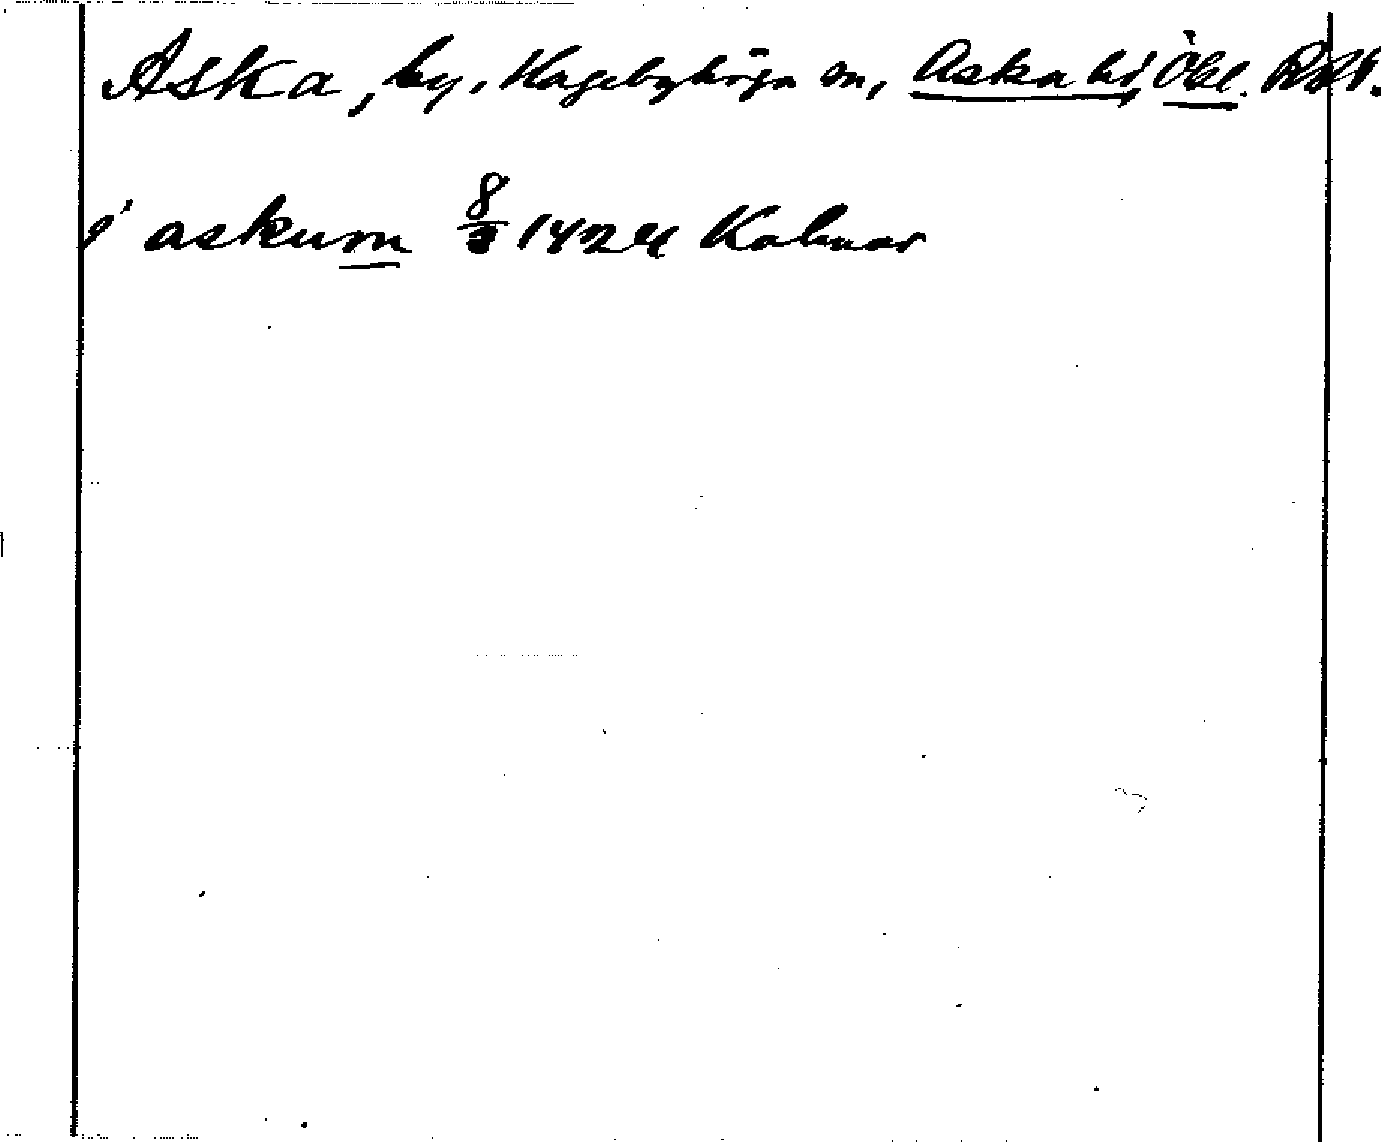 Aska, by, Hagebyhöga sn, Aska hd, Ögl.
j askum 8/ 1424 Kalmar